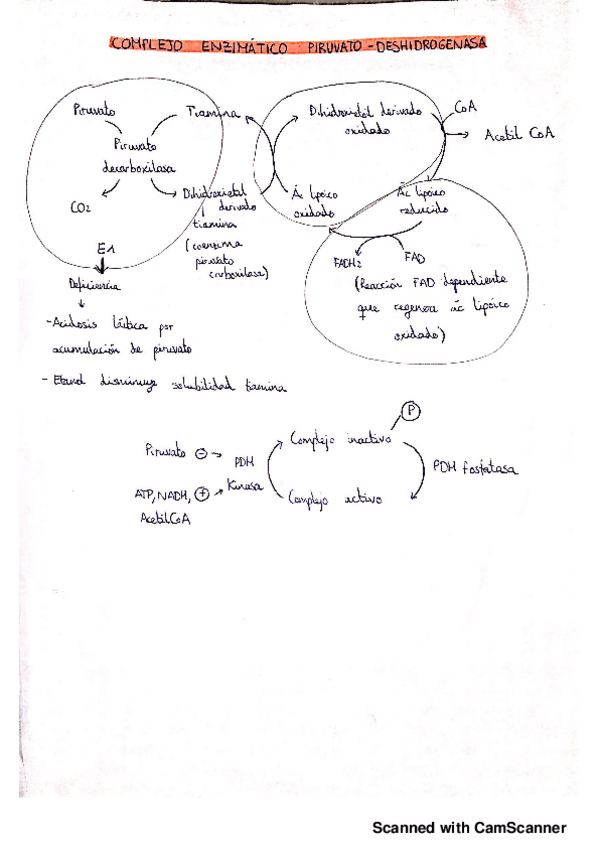 COMPLEJO ENZIMÁTICO PIRUVATO-DESHIDROGENASA
Piruvato
Tiamina
Piruvato
decarboxilasa
CO2
Dihidroxietol
derivado
tiamina
(coenzima
piruvato
carboxilasa)
E1
Dihidroxietol derivado
oxidado
CoA
Acetil CoA
Ác lipóico
oxidado
Ác lipóico
reducido
FADH2
FAD
(Reacción FAD dependiente
que regenera ác lipóico
oxidado)
Deficiencia
-Acidosis láctica por
acumulación de piruvato
- Etanol disminuye solubilidad tiamina
Piruvato ⊖ →
PDH
Kinasa
ATP, NADH, ⊕ →
Acetil CoA
Complejo inactivo
P
PDH fosfatasa
Complejo activo
Scanned with CamScanner